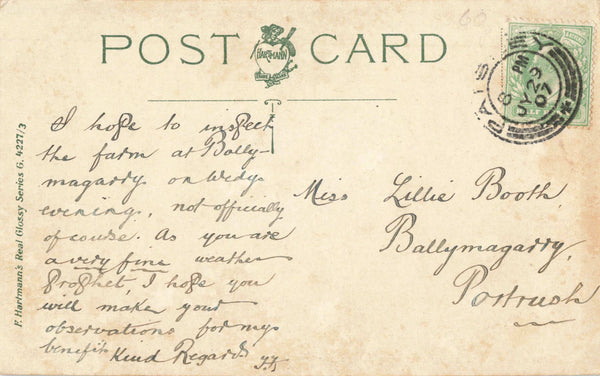 60
POST CARD
HARTMANN
PAISLEY
8 PM
JY 29
07
I hope to inspect
the farm at Bally-
magarry on Wedy
evening, not officially
of course. As you are
a very fine weather
Prophet, I hope you
will make your
observations for my
benefit Kind Regards
Miss Lillie Booth,
Ballymagarry,
Portrush
F. Hartmann's Real Glossy Series G. 4227/3